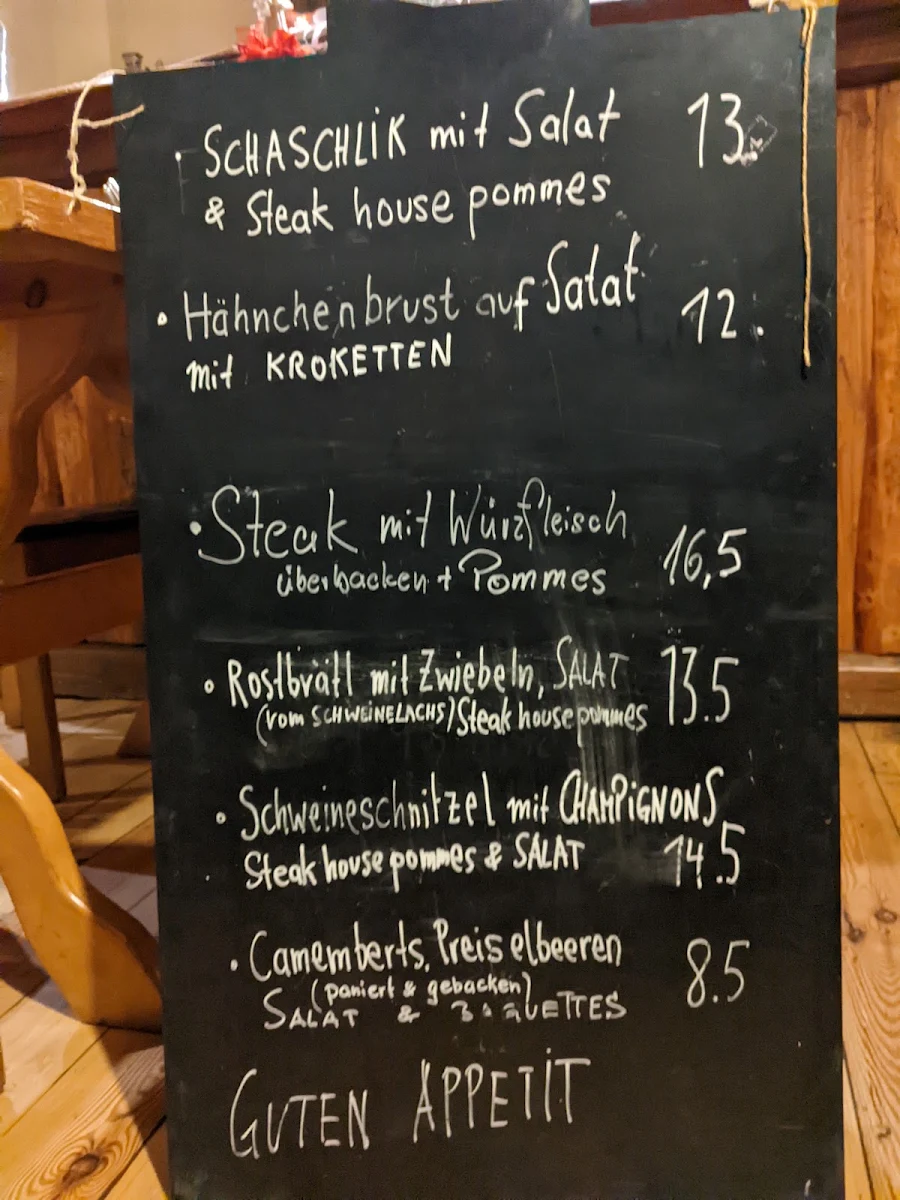 · SCHASCHLIK mit Salat 13.
& Steak house pommes
· Hähnchenbrust auf Salat 12.
mit KROKETTEN
· Steak mit Würzfleisch
überbacken + Pommes 16,5
· Rostbrätl mit Zwiebeln, SALAT 13.5
(vom SCHWEINELACHS) Steak house pommes
· Schweineschnitzel mit CHAMPIGNONS
Steak house pommes & SALAT 14.5
· Camemberts, Preiselbeeren 8.5
(paniert & gebacken)
SALAT & BAGUETTES
GUTEN APPETIT